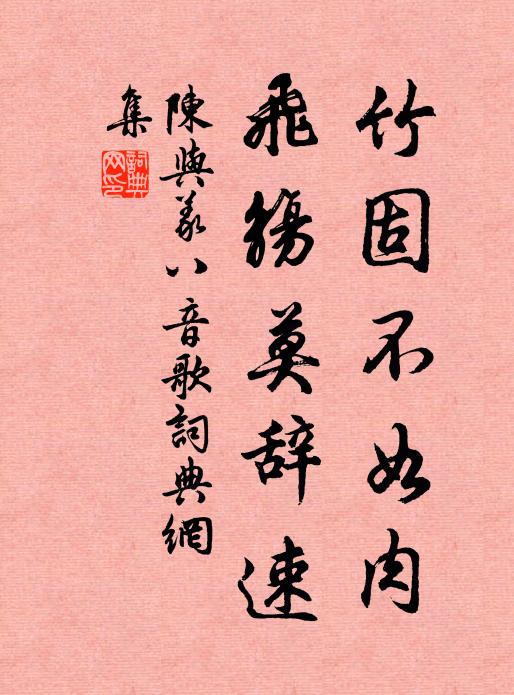 竹固不如肉
飛觴莫辞速
陳與義八音歌詞典網
集
詞典
网印